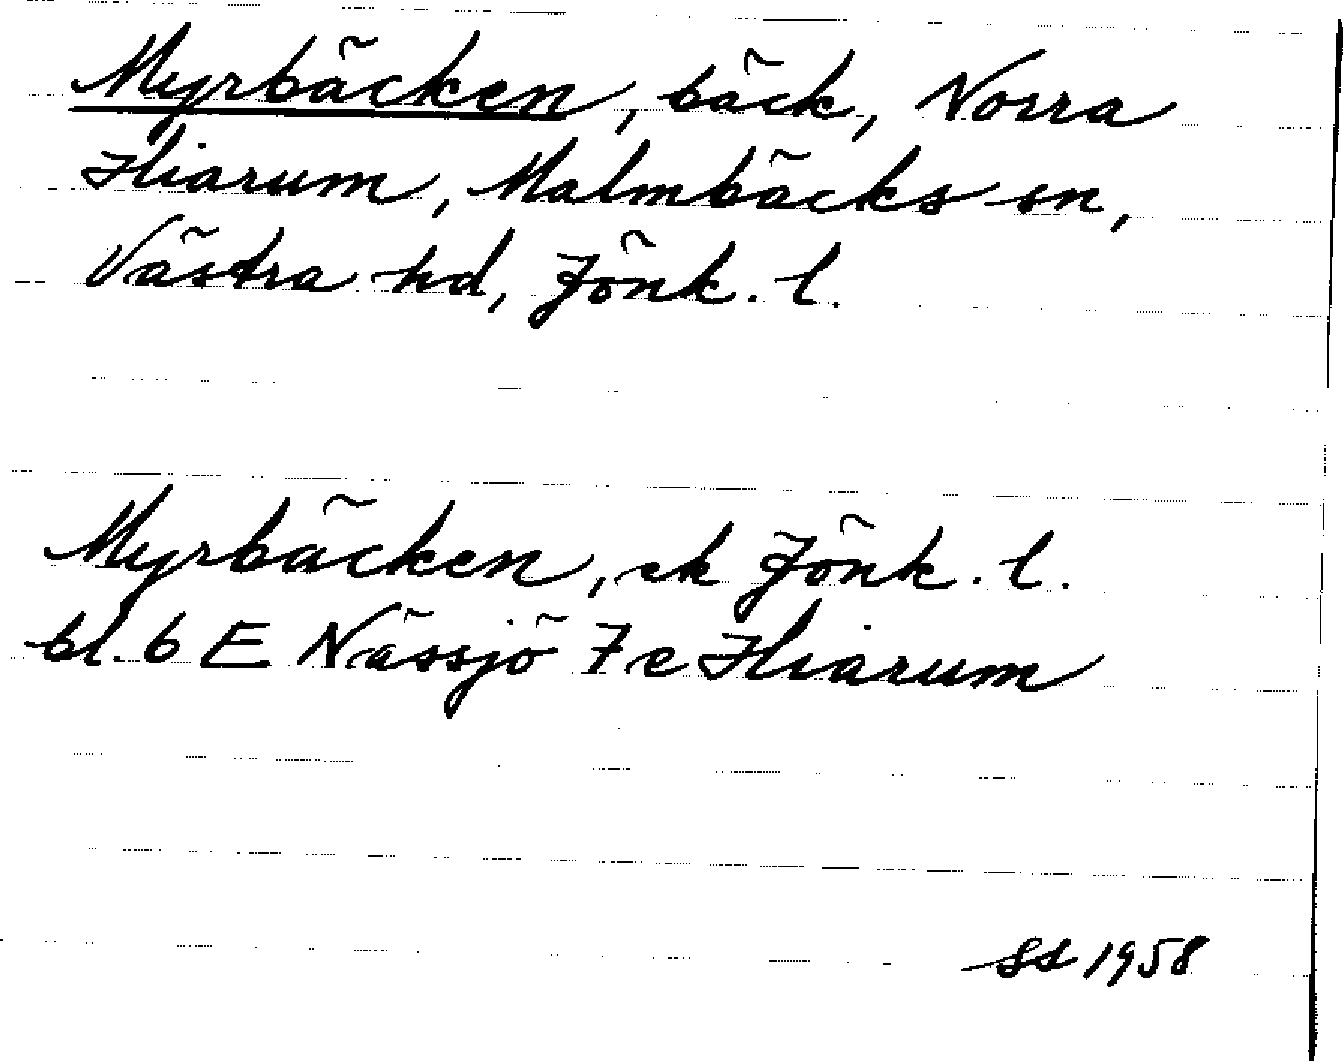 Myrbäcken, bäck, Norra
Iliarum, Malmbäcks sn,
Västra hd, Jönk. l.
Myrbäcken, ek Jönk. l.
bl. 6 E Nässjö 7 e Iliarum
SS 1958